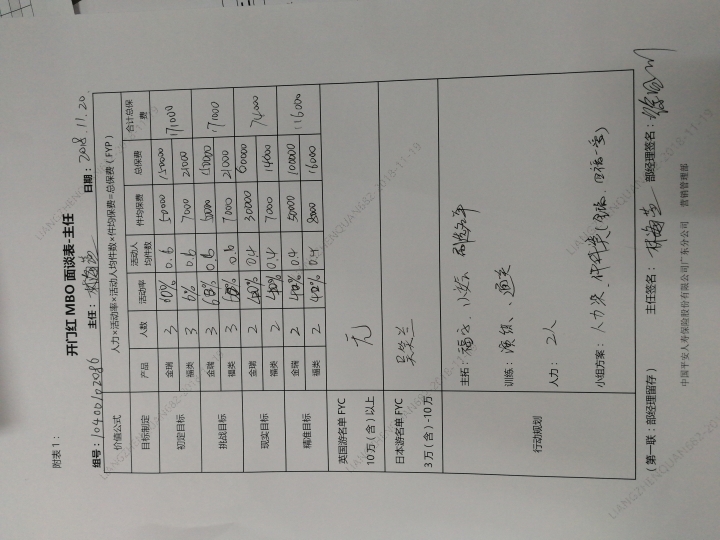 附表 1：
开门红 MBO 面谈表-主任
组号：10400102086 主任： 日期：2018.11.20
价值公式 人力×活动率×活动人均件数×件均保费=总保费（FYP）
目标制定 产品 人数 活动率 活动人均件数 件均保费 总保费 合计总保费
初定目标 金瑞 3 60% 0.6 50000 150000 171000
福类 3 6% 0.6 7000 21000
挑战目标 金瑞 3 60% 0.6 150000 171000
福类 3 60% 0.6 7000 21000
现实目标 金瑞 2 40% 0.4 30000 60000 74000
福类 2 40% 0.4 7000 14000
精准目标 金瑞 2 40% 0.4 50000 100000 116000
福类 2 40% 0.4 8000 16000
英国游名单 FYC
10 万（含）以上 无
日本游名单 FYC
3 万（含）-10 万 吴笑兰
行动规划
主拓：福字、
训练：演练、通关
人力：2人
小组方案：人力奖、件件奖
（第一联：部经理留存） 主任签名： 部经理签名：
中国平安人寿保险股份有限公司广东分公司 营销管理部